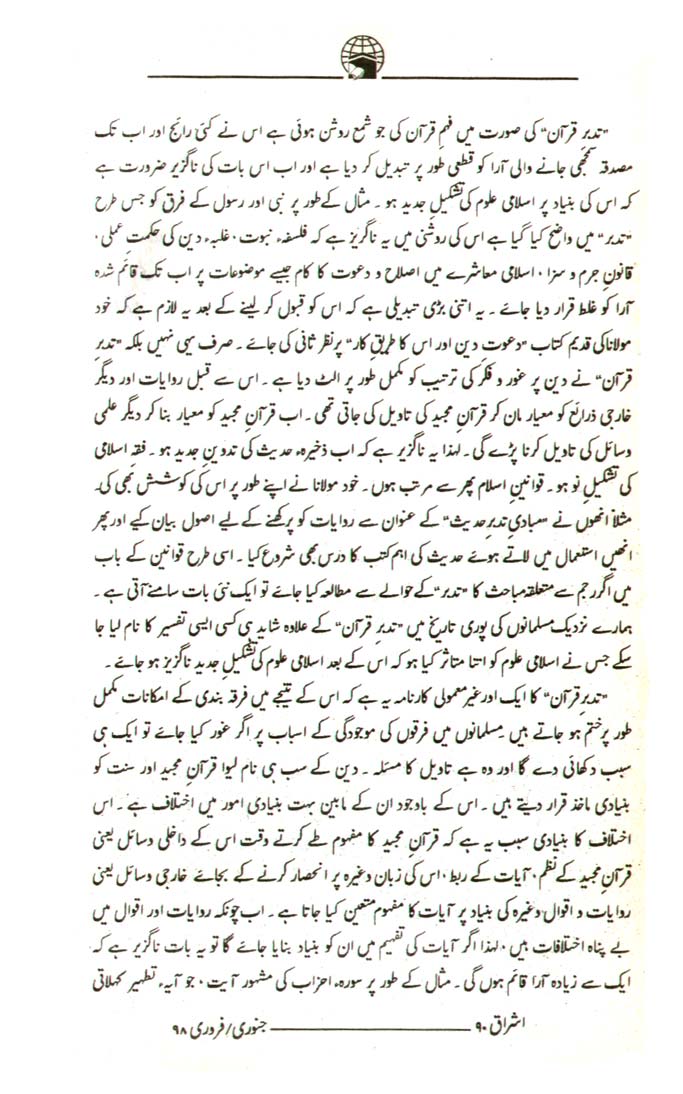 ”تدبرِ قرآن“ کی صورت میں فہمِ قرآن کی جو شمع روشن ہوئی ہے اس نے کئی رائج اور اب تک
مصدقہ سمجھی جانے والی آرا کو قطعی طور پر تبدیل کر دیا ہے اور اب اس بات کی ناگزیر ضرورت ہے
کہ اس کی بنیاد پر اسلامی علوم کی تشکیلِ جدید ہو ۔ مثال کے طور پر نبی اور رسول کے فرق کو جس طرح
”تدبر“ میں واضح کیا گیا ہے اس کی روشنی میں یہ ناگزیر ہے کہ فلسفۂ نبوت ، غلبۂ دین کی حکمتِ عملی ،
قانونِ جرم و سزا ، اسلامی معاشرے میں اصلاح و دعوت کا کام جیسے موضوعات پر اب تک قائم شدہ
آرا کو غلط قرار دیا جائے ۔ یہ اتنی بڑی تبدیلی ہے کہ اس کو قبول کر لینے کے بعد یہ لازم ہے کہ خود
مولانا کی قدیم کتاب ”دعوتِ دین اور اس کا طریقِ کار“ پر نظر ثانی کی جائے ۔ صرف یہی نہیں بلکہ ”تدبرِ
قرآن“ نے دین پر غور و فکر کی ترتیب کو مکمل طور پر الٹ دیا ہے ۔ اس سے قبل روایات اور دیگر
خارجی ذرائع کو معیار مان کر قرآنِ مجید کی تاویل کی جاتی تھی ۔ اب قرآنِ مجید کو معیار بنا کر دیگر علمی
وسائل کی تاویل کرنا پڑے گی ۔ لہٰذا یہ ناگزیر ہے کہ اب ذخیرۂ حدیث کی تدوینِ جدید ہو ۔ فقہِ اسلامی
کی تشکیلِ نو ہو ۔ قوانینِ اسلام پھر سے مرتب ہوں ۔ خود مولانا نے اپنے طور پر اس کی کوشش بھی کی۔
مثلاً انھوں نے ”مبادیِ تدبرِ حدیث“ کے عنوان سے روایات کو پرکھنے کے لیے اصول بیان کیے اور پھر
انھیں استعمال میں لاتے ہوئے حدیث کی اہم کتب کا درس بھی شروع کیا ۔ اسی طرح قوانین کے باب
میں اگر رجم سے متعلقہ مباحث کا ”تدبر“ کے حوالے سے مطالعہ کیا جائے تو ایک نئی بات سامنے آتی ہے ۔
ہمارے نزدیک مسلمانوں کی پوری تاریخ میں ”تدبرِ قرآن“ کے علاوہ شاید ہی کسی ایسی تفسیر کا نام لیا جا
سکے جس نے اسلامی علوم کو اتنا متاثر کیا ہو کہ اس کے بعد اسلامی علوم کی تشکیلِ جدید ناگزیر ہو جائے ۔
”تدبرِ قرآن“ کا ایک اور غیر معمولی کارنامہ یہ ہے کہ اس کے نتیجے میں فرقہ بندی کے امکانات مکمل
طور پر ختم ہو جاتے ہیں ۔ مسلمانوں میں فرقوں کی موجودگی کے اسباب پر اگر غور کیا جائے تو ایک ہی
سبب دکھائی دے گا اور وہ ہے تاویل کا مسئلہ ۔ دین کے سب ہی نام لیوا قرآنِ مجید اور سنت کو
بنیادی ماخذ قرار دیتے ہیں ۔ اس کے باوجود ان کے مابین بہت بنیادی امور میں اختلاف ہے ۔ اس
اختلاف کا بنیادی سبب یہ ہے کہ قرآنِ مجید کا مفہوم طے کرتے وقت اس کے داخلی وسائل یعنی
قرآنِ مجید کے نظم ، آیات کے ربط ، اس کی زبان وغیرہ پر انحصار کرنے کے بجائے خارجی وسائل یعنی
روایات و اقوال وغیرہ کی بنیاد پر آیات کا مفہوم متعین کیا جاتا ہے ۔ اب چونکہ روایات اور اقوال میں
بے پناہ اختلافات ہیں ، لہٰذا اگر آیات کی تفہیم میں ان کو بنیاد بنایا جائے گا تو یہ بات ناگزیر ہے کہ
ایک سے زیادہ آرا قائم ہوں گی ۔ مثال کے طور پر سورۂ احزاب کی مشہور آیت ، جو آیۂ تطہیر کہلاتی
اشراق ۹۰ ـــــــــــــــ جنوری/فروری ۹۸